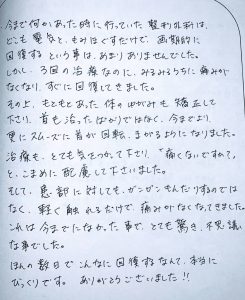 今まで何かあった時に行っていた整形外科は、
どこも電気と、もみほぐすだけで、画期的に
回復するという事は、あまりありませんでした。
しかし、3回の治療なのに、みるみるうちに痛みが
なくなり、すぐに回復してきました。
その上、もともとあった体のゆがみも矯正して
下さり、首も治ったばかりではなく、今までより、
更にスムーズに首が回転、まがるようになりました。
治療も、とても気をつかって下さり、「痛くないですか?」
と、こまめに配慮して下さいました。
そして、患部に対しても、ガンガンもんだりするのでは
なく、軽く触れるだけで、痛みがなくなってきました。
これは今までになかった事で、とても驚き、不思議
な事でした。
ほんの数日でこんなに回復するなんて、本当に
びっくりです。ありがとうございました!!